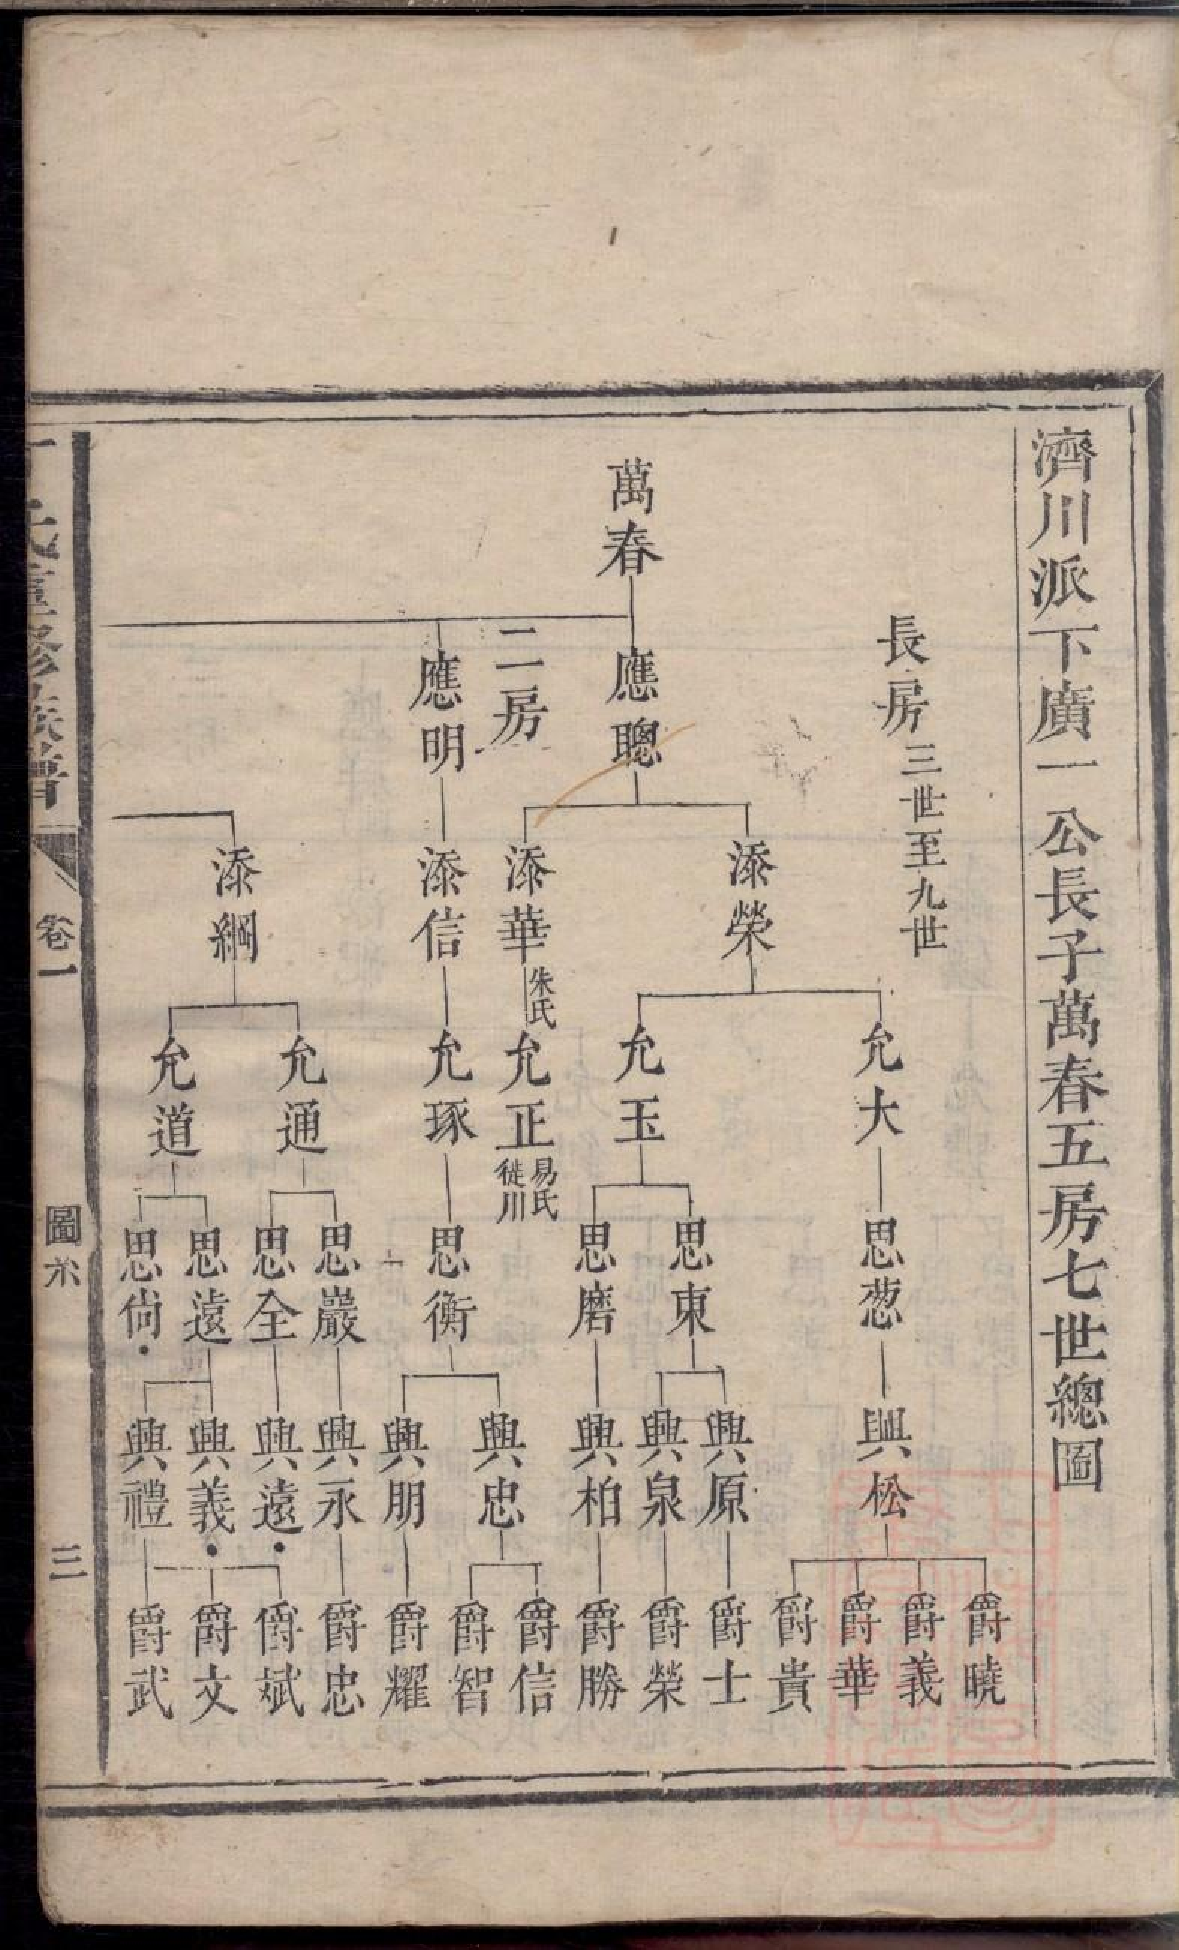 濟川派下廣一公長子萬春五房七世總圖
長房三世至九世
萬春
應聰
二房
應明
添榮
添華朱氏
添信
添綱
允大
允玉
允正易氏徙川
允琢
允通
允道
思葱
思東
思磨
思衡
思巖
思全
思遠
思尙
興松
興原
興泉
興柏
興忠
興朋
興永
興遠
興義
興禮
爵曉
爵義
爵華
爵貴
爵士
爵榮
爵勝
爵信
爵智
爵耀
爵忠
爵斌
爵文
爵武
氏重修族譜
卷一
圖系
三